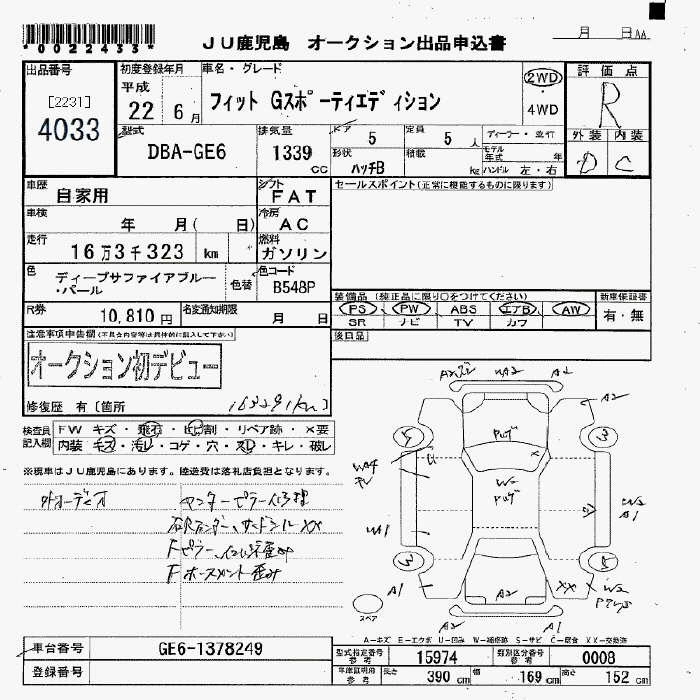 *0022433*
JU鹿児島 オークション出品申込書
月 日AA
出品番号
[2231]
4033
初度登録年月
平成
22 6月
車名・グレード
フィット Gスポーティエディション
2WD
・
4WD
評価点
R
外装 内装
D C
型式
DBA-GE6
排気量
1339
CC
ドア 5
定員 5 人
形状 ハッチB
積載 kg
ディーラー・並行
モデル年式 年
ハンドル 左・右
車歴
自家用
シフト
FAT
セールスポイント(正常に機能するものに限ります)
車検
年 月( 日)
冷房
AC
走行
16万3千323 km
燃料
ガソリン
色
ディープサファイアブルー
・パール
色替
色コード
B548P
装備品 (純正品に限り○をつけてください)
PS PW ABS エアB AW
SR ナビ TV カワ
新車保証書
有・無
R券
10,810円
名変通知期限
月 日
後日品
注意事項申告欄(不具合内容等は具体的に記入して下さい)
オークション初デビュー
修復歴 有〔箇所
163291km〕
検査員
記入欄
FW キズ・飛石・ヒビ割・リペア跡・X要
内装 キズ・汚レ・コゲ・穴・スレ・キレ・破レ
※現車はJU鹿児島にあります。陸送費は落札店負担となります。
外オーディオ
センターピラー
Fピラー
A2
A1
A2
W2
3
3
UA1
A1
A2
A1
XX
W2
スペア
A－キズ E－エクボ U－凹み W－補修跡 S－サビ C－腐食 XX－交換済
車台番号
GE6-1378249
登録番号
型式指定番号
参考
15974
類別区分番号
参考
0008
車庫証明用
参考
長さ 390 cm
幅 169 cm
高さ 152 cm